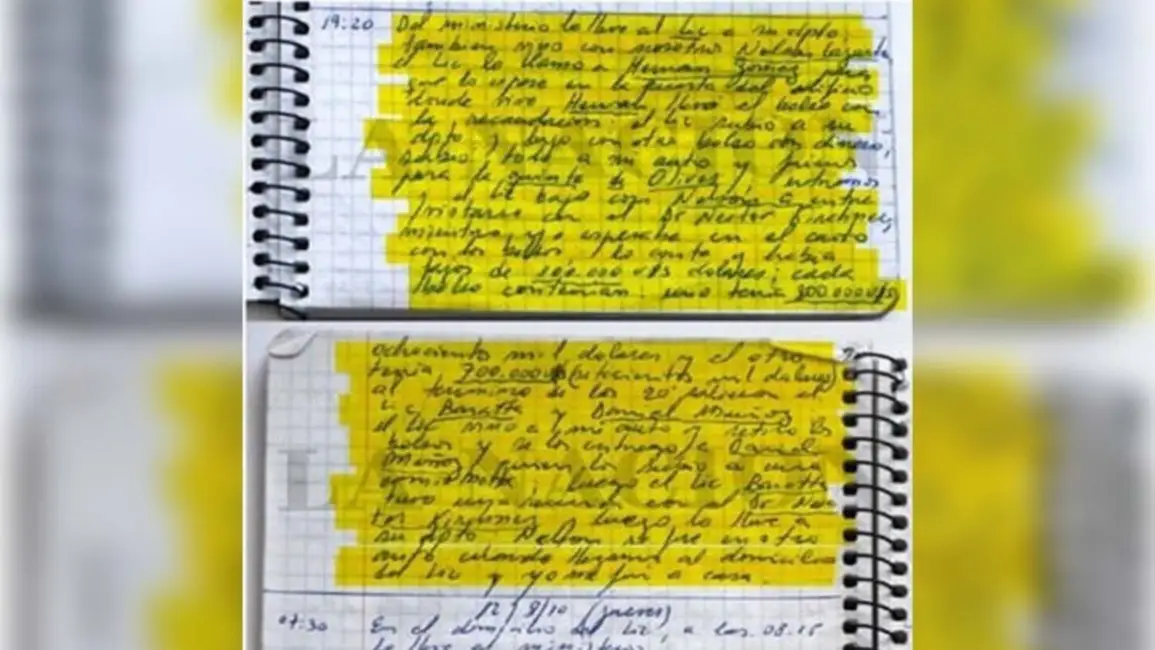 19:20 Del ministerio lo lleve al Lic a su dpto
tambien vino con nosotros Nelson Lazarte
el Lic lo llamo a Hernan Gomez para
que lo espere en la puerta del edificio
donde vive Hernan llevó el bolso con
la recaudacion el Lic subio a su
dpto y bajo con otro bolso con dinero,
todo a mi auto y fuimos
para la quinta de Olivos, entramos
el Lic bajo con Nelson a entre
vistarse con el Dr Nestor Kirchner,
mientras yo esperaba en el auto
con los bolsos, lo conte y habia
fajos de 100.000 u$s dolares; cada
bolso contenian uno tenia 800.000 u$s
ochociento mil dolares y el otro
tenia 700.000 u$s (setecientos mil dolares)
al termino de los 20 salieron el
Lic Baratta y Daniel Muñoz
el Lic vino a mi auto y retiro los
bolsos y se los entrego a Daniel
Muñoz, quien los subio a una
camioneta, luego el Lic Baratta
tuvo una reunion con el Dr Nes
tor Kirchner, luego lo lleve a
su dpto Nelson se fue en otro
auto cuando llegamos al domicilio
del Lic y yo me fui a casa.
12/8/10 (jueves)
07:30 En el domicilio del Lic, a las 08.15
lo lleve al ministerio;
LA NACION
LA NACION